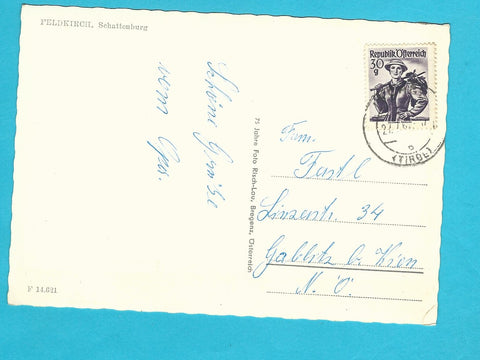 FELDKIRCH, Schattenburg
Schöne Grüße
vom
F 14.821
75 Jahre Foto Risch-Lau, Bregenz, Österreich
Republik Österreich
30
g
(TIROL)
Fam.
Fastl
Linzerstr. 34
Gablitz b. Wien
N. Ö.